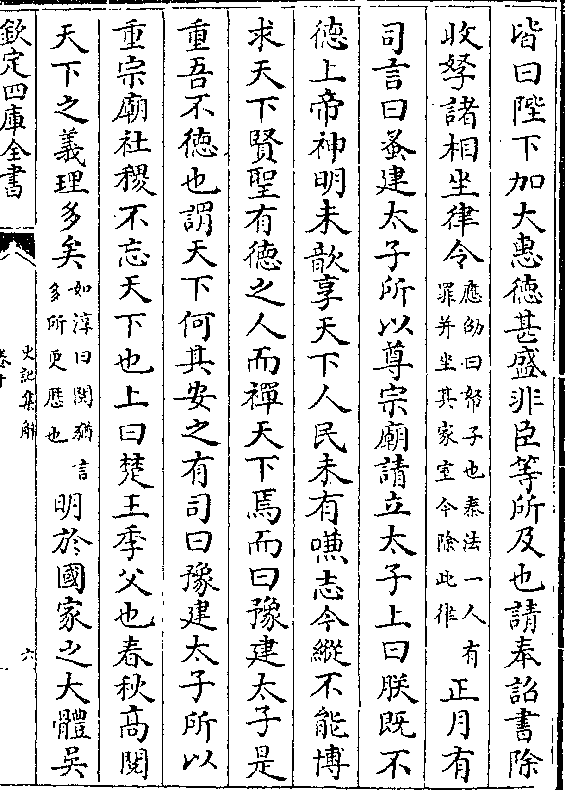 皆曰陛下加大惠德甚盛非臣等所及也請奉詔書除
收孥諸相坐律令應劭曰帑子也秦法一人有罪并坐其家室今除此律正月有
司言曰蚤建太子所以尊宗廟請立太子上曰朕既不
德上帝神明未歆享天下人民未有嗛志今縱不能博
求天下賢聖有德之人而禪天下焉而曰豫建太子是
重吾不德也謂天下何其安之有司曰豫建太子所以
重宗廟社稷不忘天下也上曰楚王季父也春秋高閱
天下之義理多矣如淳曰閱猶言多所更歷也明於國家之大體吳
欽定四庫全書
史記集解
卷十
六